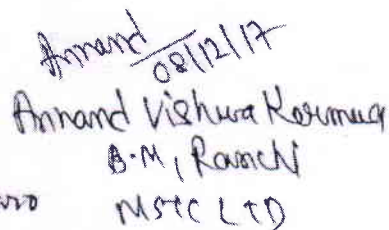 Annand
08/12/17
Annand Vishwa Karmua
B.M, Ranchi
MSTC LTD